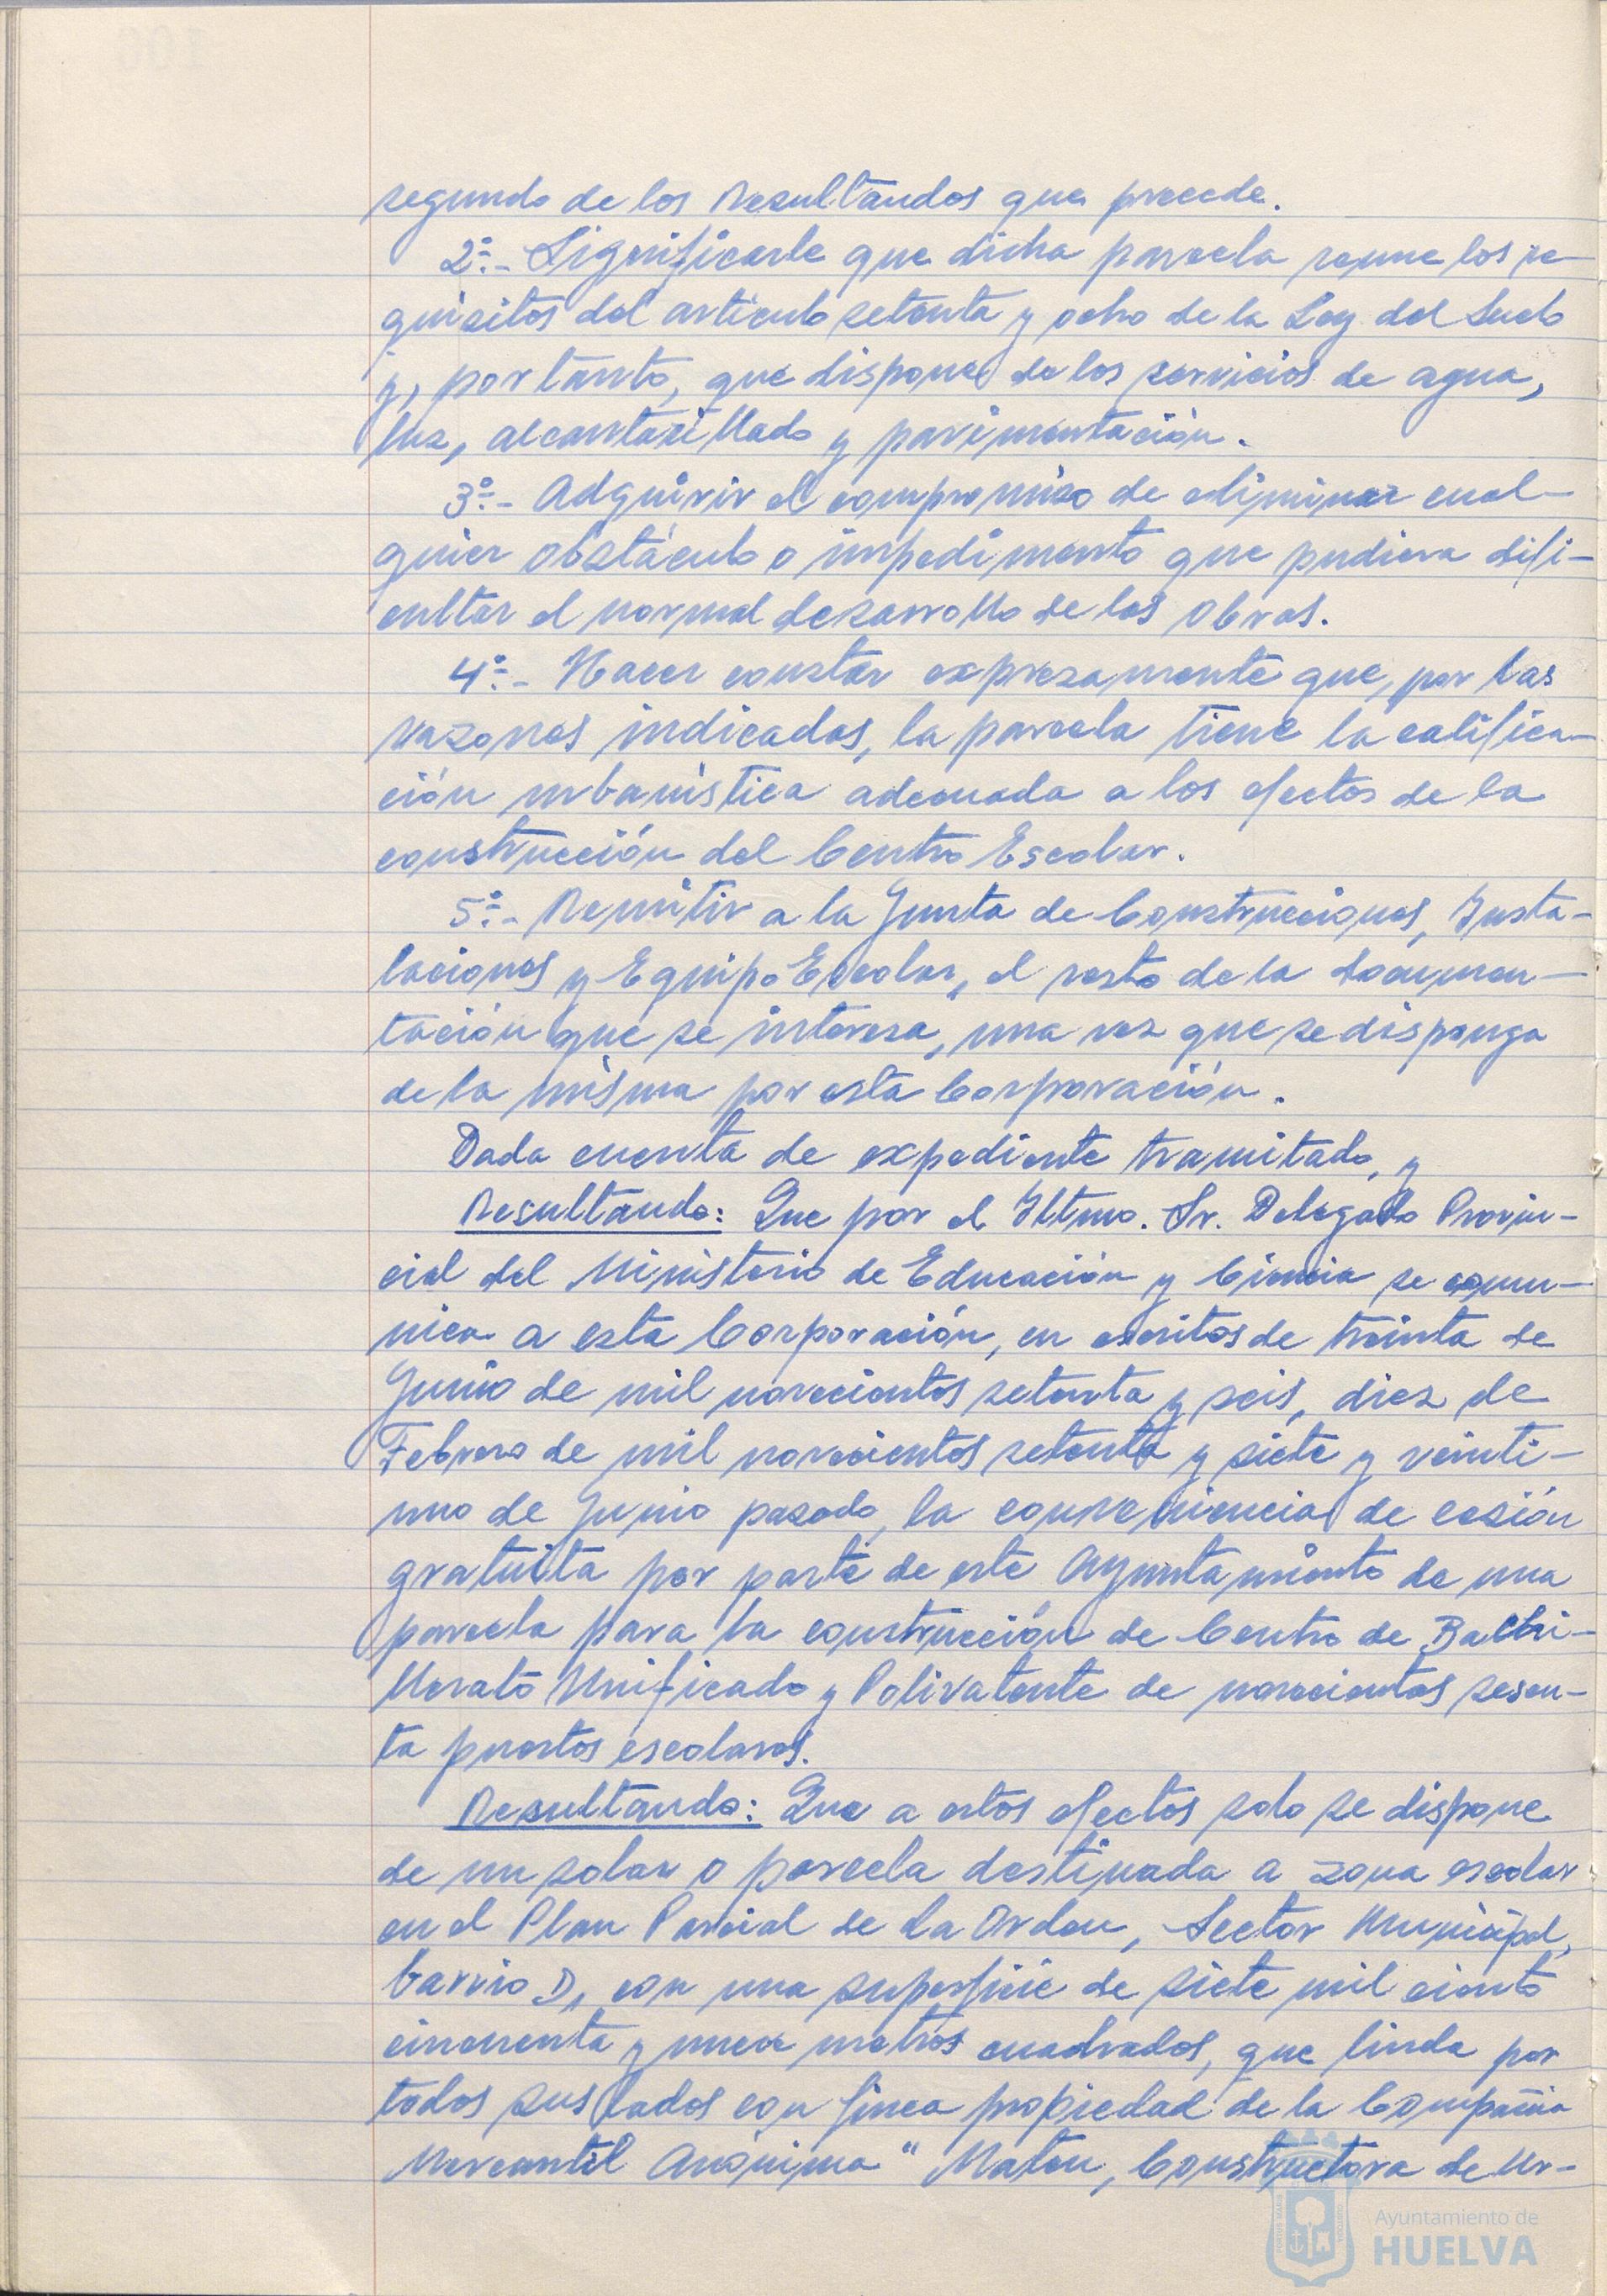 segundo de los Resultandos que precede.
2º.- Significarle que dicha parcela reune los re-
quisitos del articulo setenta y ocho de la Ley del Suelo
y, por tanto, que dispone de los servicios de agua,
luz, alcantarillado y pavimentación.
3º.- Adquirir el compromiso de eliminar cual-
quier obstáculo o impedimento que pudiera difi-
cultar el normal desarrollo de las obras.
4º.- Hacer constar expresamente que, por las
razones indicadas, la parcela tiene la califica-
ción urbanística adecuada a los efectos de la
construcción del Centro Escolar.
5º.- Remitir a la Junta de Construcciones, Insta-
laciones y Equipo Escolar, el resto de la documen-
tación que se interesa, una vez que se disponga
de la misma por esta Corporación.
Dada cuenta de expediente tramitado, y
Resultando: Que por el Iltmo. Sr. Delegado Provin-
cial del Ministerio de Educación y Ciencia se comu-
nica a esta Corporación, en escritos de treinta de
Junio de mil novecientos setenta y seis, diez de
Febrero de mil novecientos setenta y siete y veinti-
uno de Junio pasado, la conveniencia de cesión
gratuita por parte de este Ayuntamiento de una
parcela para la construcción de Centro de Bachi-
llerato Unificado y Polivalente de novecientos sesen-
ta puestos escolares.
Resultando: Que a estos efectos solo se dispone
de un solar o parcela destinada a zona escolar
en el Plan Parcial de La Orden, Sector Municipal,
barrio D, con una superficie de siete mil ciento
cincuenta y nueve metros cuadrados, que linda por
todos sus lados con finca propiedad de la Compañia
Mercantil Anónima "Maten, Constructora de Ur-
Ayuntamiento de
HUELVA